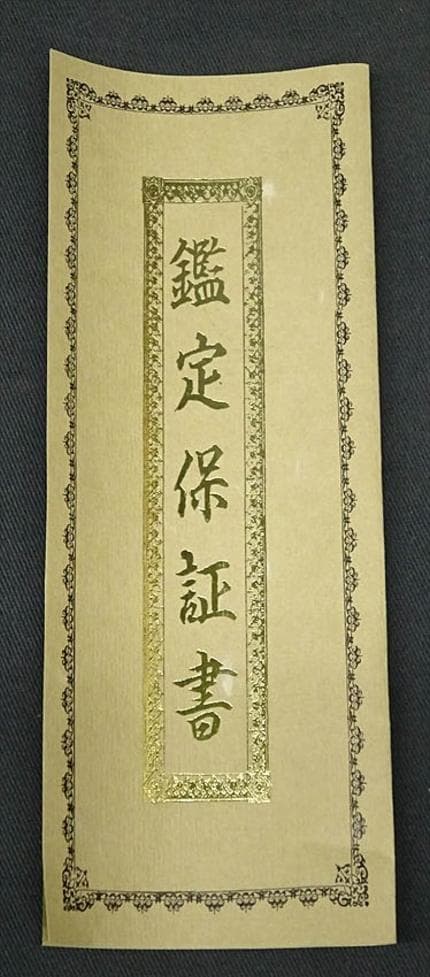 鑑定保証書